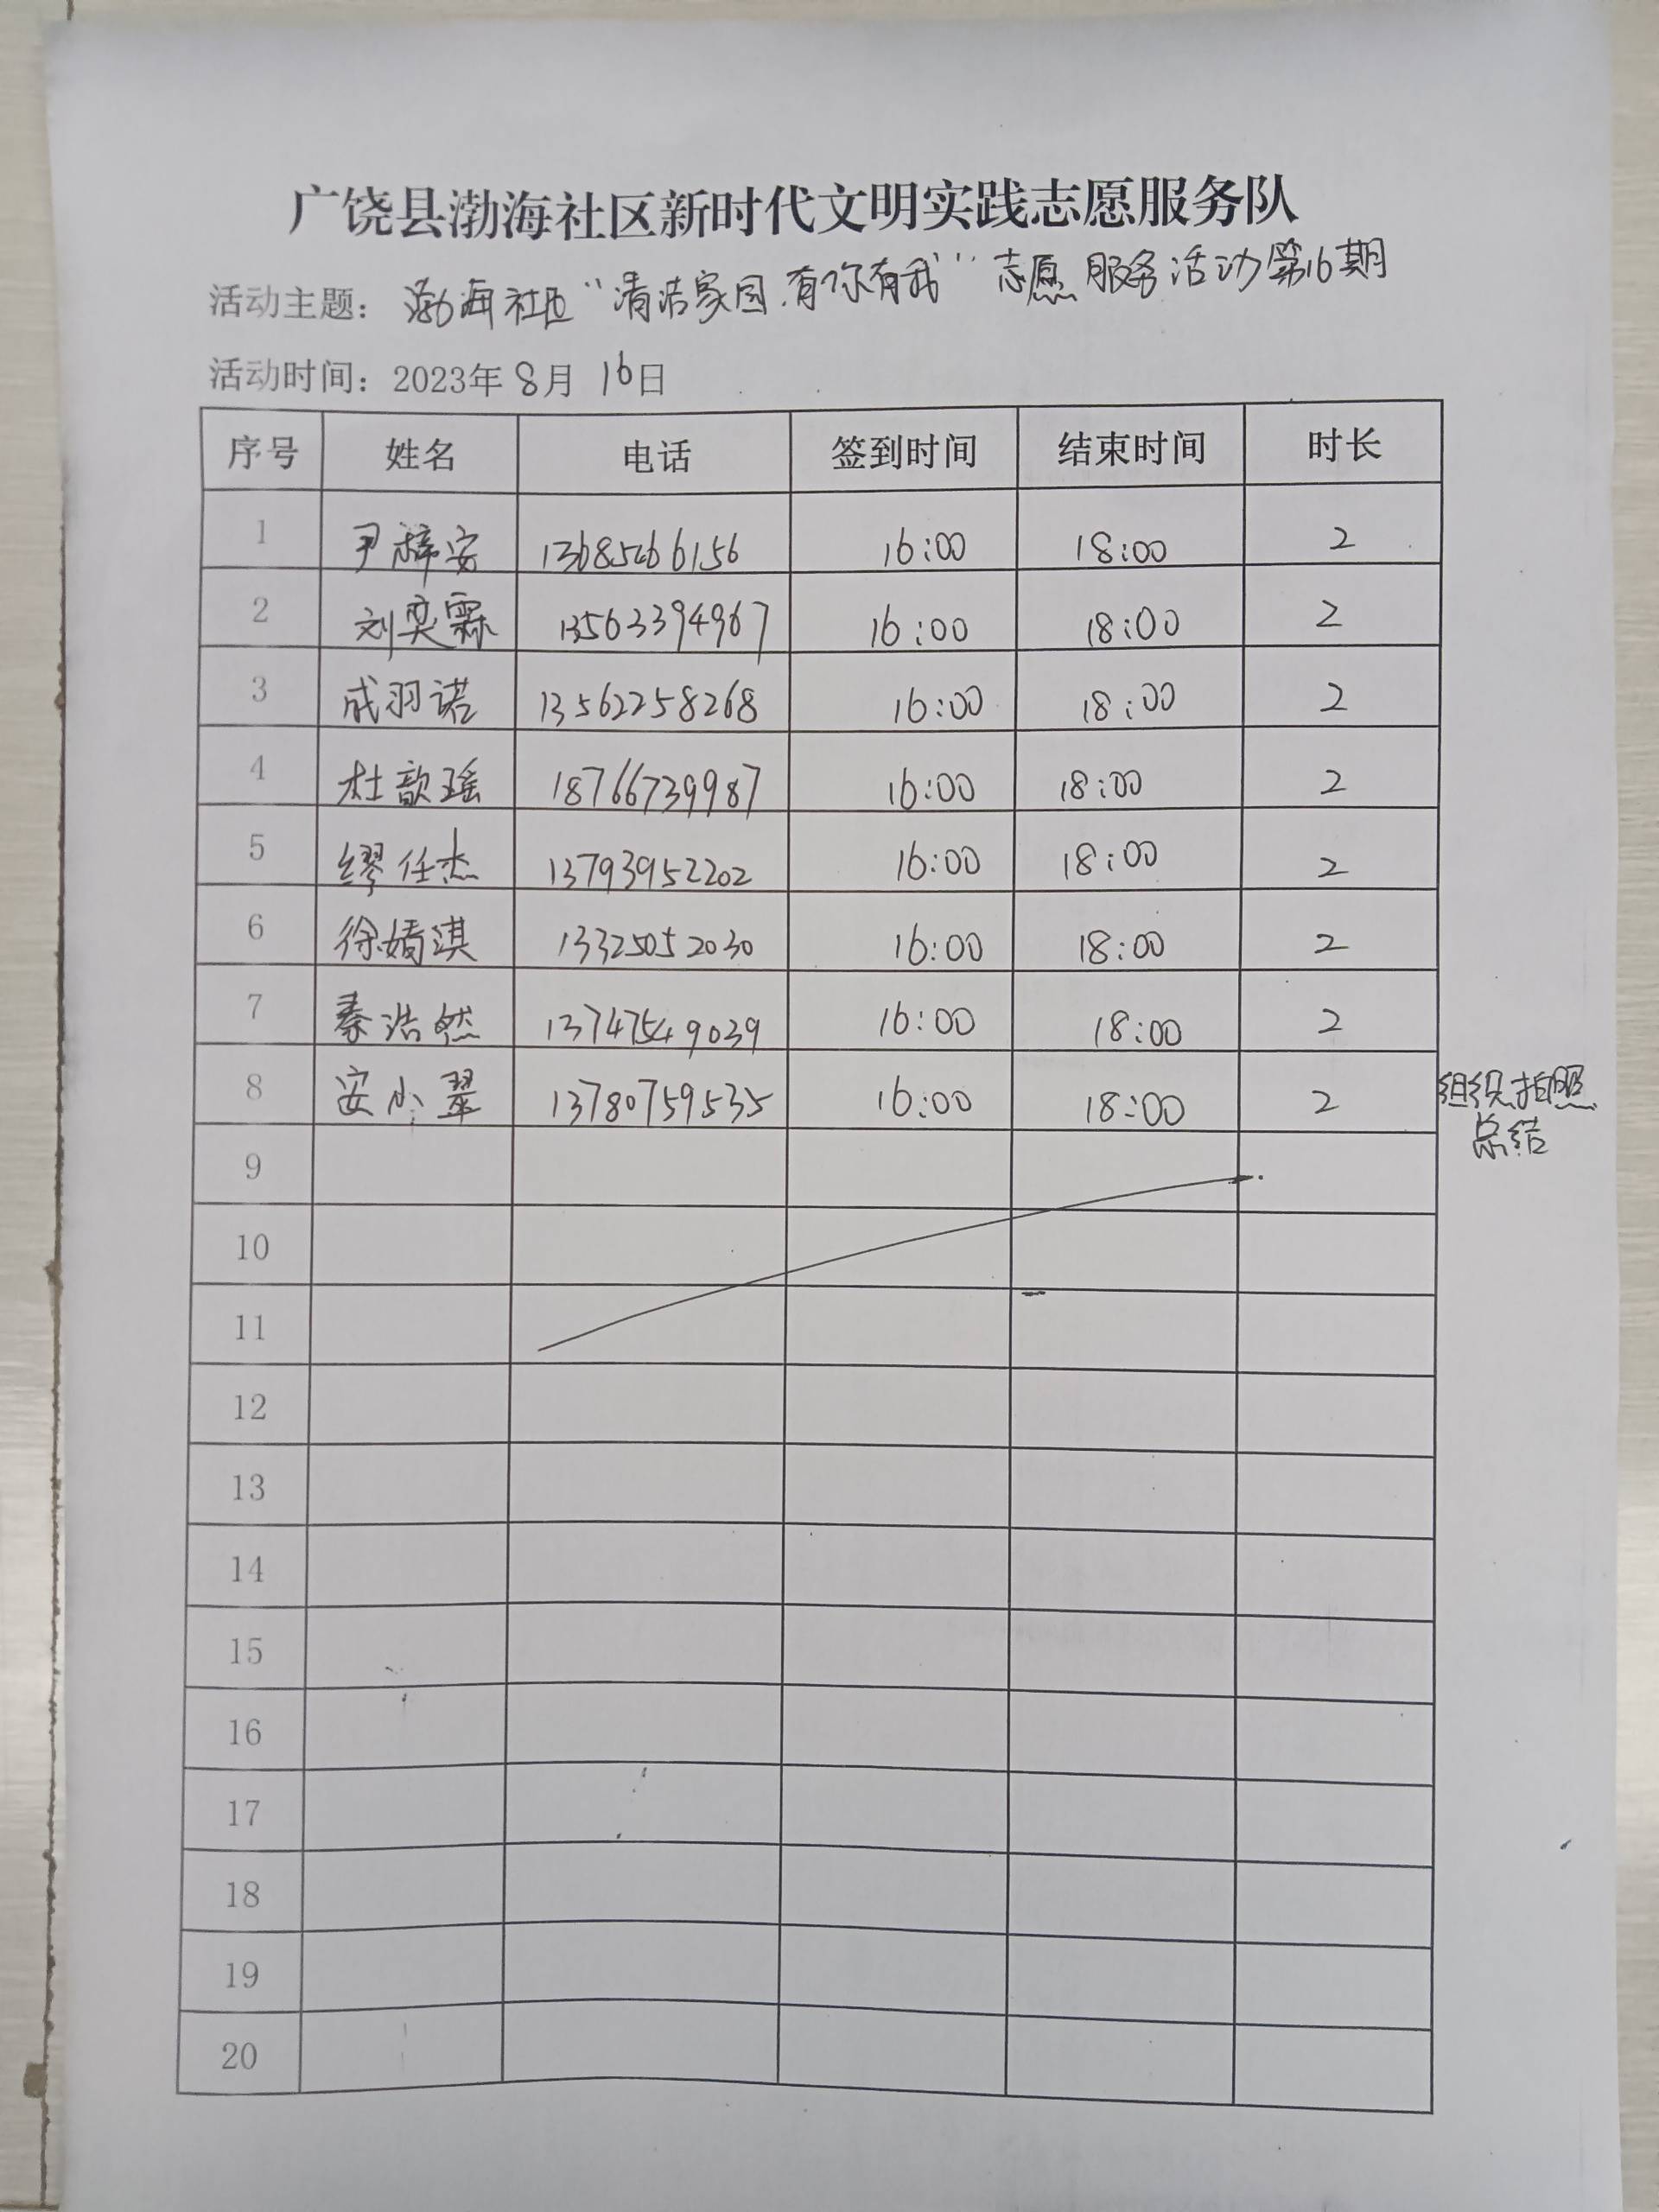 广饶县渤海社区新时代文明实践志愿服务队
活动主题：渤海社区“清洁家园.有你有我”志愿服务活动第16期
活动时间：2023年8月16日
序号 姓名 电话 签到时间 结束时间 时长
1 尹梓安 13685466156 16:00 18:00 2
2 刘奕霖 13563394967 16:00 18:00 2
3 成羽诺 13562258268 16:00 18:00 2
4 杜歆瑶 18766739987 16:00 18:00 2
5 缪任杰 13793952202 16:00 18:00 2
6 徐婧淇 13325052030 16:00 18:00 2
7 秦浩然 13747549039 16:00 18:00 2
8 安小翠 13780759535 16:00 18:00 2 组织.拍照
总结
9
10
11
12
13
14
15
16
17
18
19
20